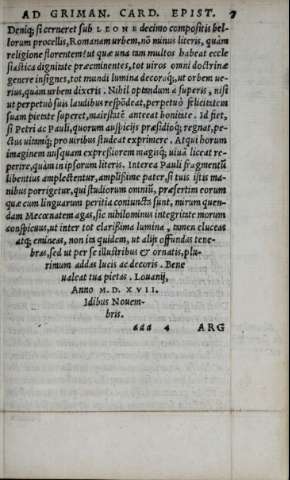 AD GRIMAN. CARD. EPIST. 7
Deniq; si cerneret sub LEONE decimo compositis bel-
lorum procellis, Romanam urbem, nõ minus literis, quàm
religione florentem: ut quæ una tam multos habeat eccle
siastica dignitate præeminentes, tot uiros omni doctrinæ
genere insignes, tot mundi lumina decoraq;, ut orbem ue-
rius, quàm urbem dixeris. Nihil optandum à superis, nisi
ut perpetuò suis laudibus respõdeat, perpetuò felicitatem
suam pietate superet, maiestatẽ anteeat bonitate. Id fiet,
si Petri ac Pauli, quorum auspicijs præsidioq; regnat, pe-
ctus uitamq; pro uiribus studeat exprimere. Atqui horum
imaginem nusquam expressiorem magisq; uiuã liceat re-
perire, quàm in ipsorum literis. Interea Pauli fragmentũ
libentius amplectentur, amplissime pater, si tuis istis ma-
nibus porrigetur, qui studiorum omniũ, præsertim eorum
quæ cum linguarum peritia coniuncta sunt, mirum quen-
dam Mecœnatem agas, sic nihilominus integritate morum
conspicuus, ut inter tot clarissima lumina, tamen eluceas
atq; emineas, non in quidem, ut alijs offundas tene-
bras, sed ut per se illustribus & ornatis, plu-
rimum addas lucis ac decoris. Bene
ualeat tua pietas. Louanij,
Anno M. D. XVII.
Idibus Nouem-
bris.
aaa 4 ARG